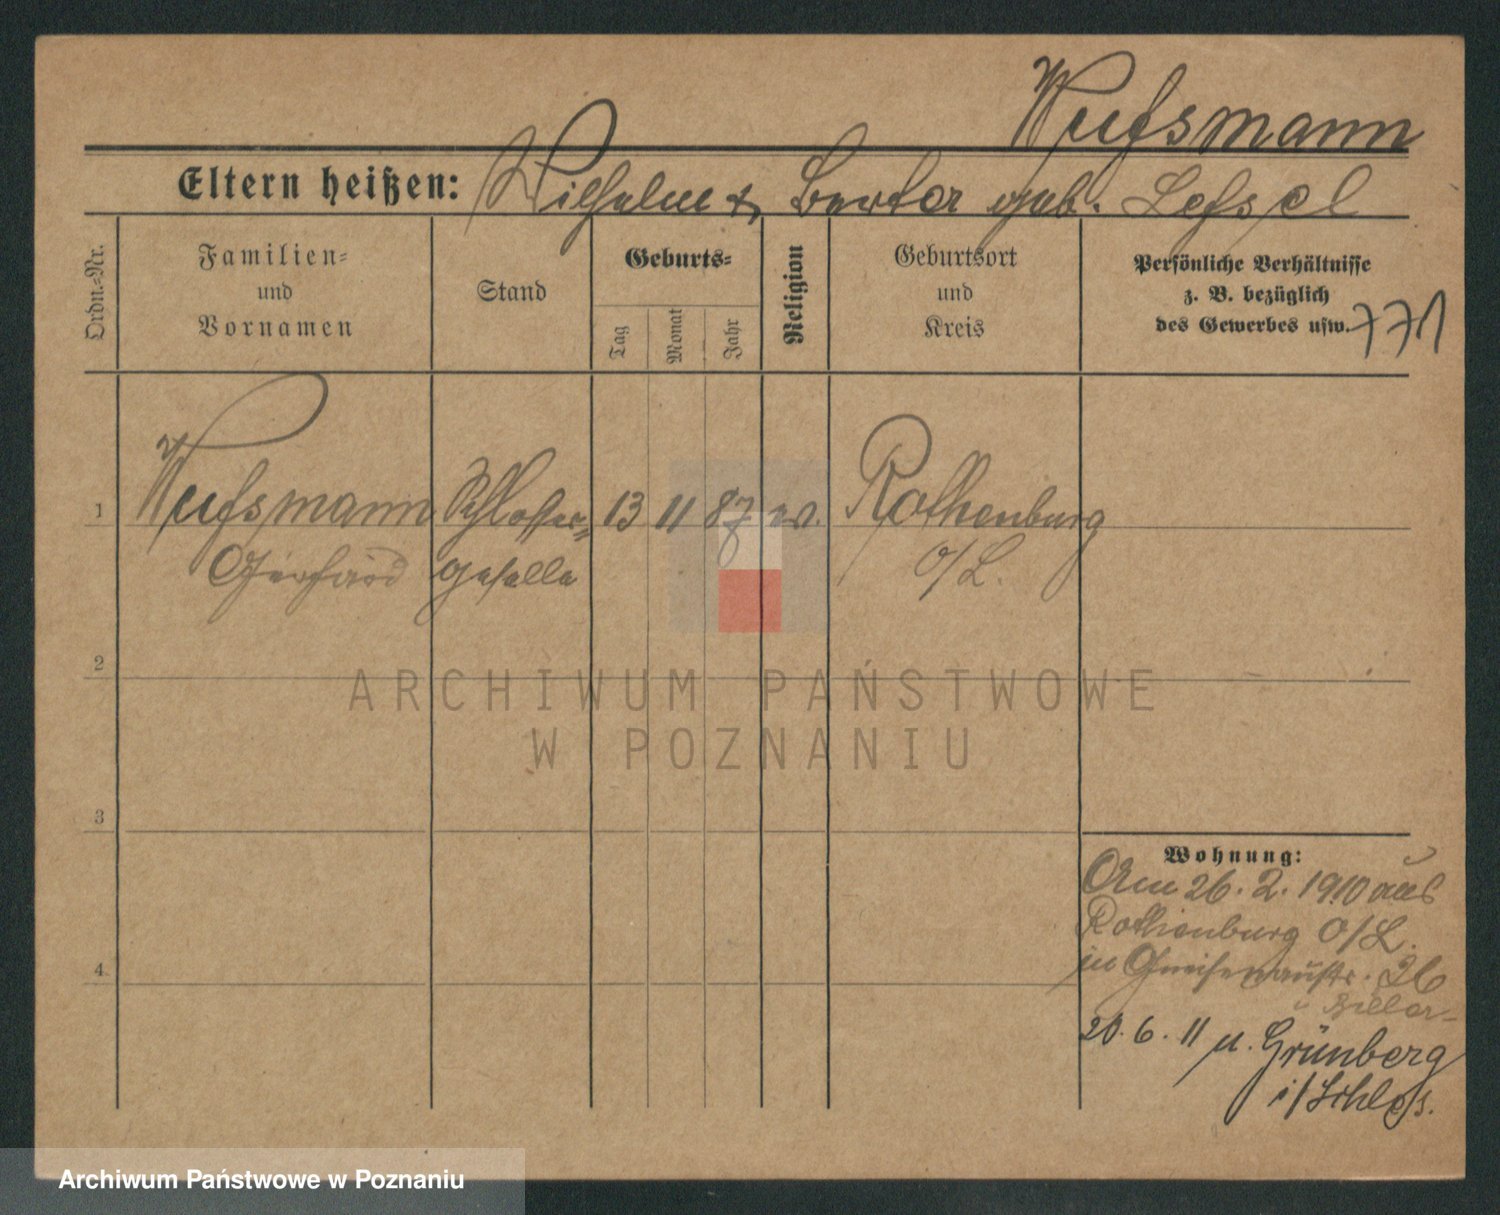 Wufsmann
Eltern heißen: Wilhelm & Berta geb. Lefsel
Ordn.-Nr.
Familien-
und
Vornamen
Stand
Geburts-
Tag
Monat
Jahr
Religion
Geburtsort
und
Kreis
Persönliche Verhältnisse
z. B. bezüglich
des Gewerbes usw.
771
1 Wufsmann Schlosser- 13 11 87 ev. Rothenburg
Gerhard geselle O/L.
2
3
4
Wohnung:
Am 26. 2. 1910 aus
Rothenburg O/L.
in Gneisenaustr. 26
b Biller-
20. 6. 11 n. Grünberg
i/Schles.
ARCHIWUM PAŃSTWOWE
W POZNANIU
Archiwum Państwowe w Poznaniu